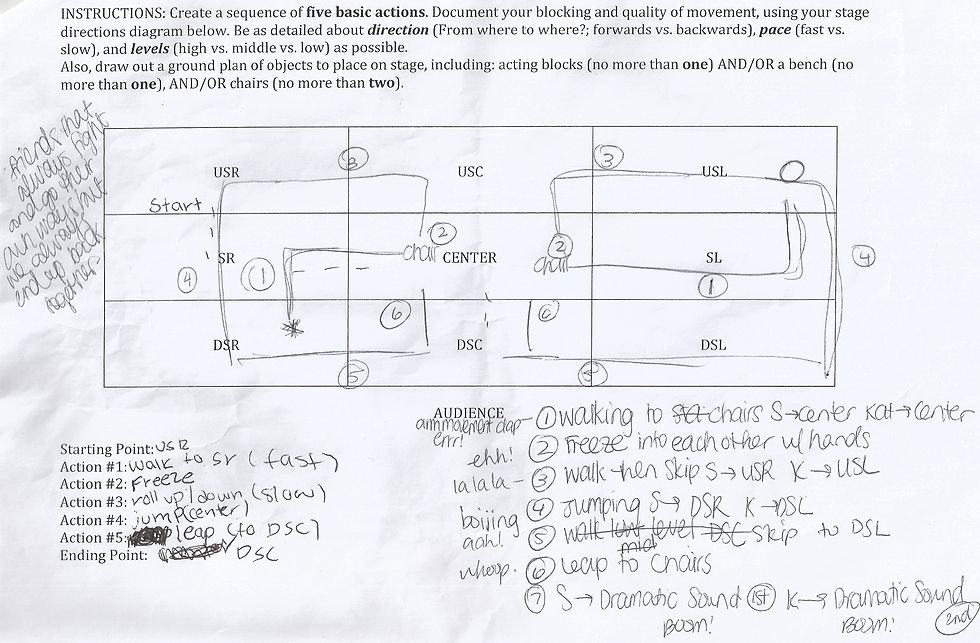 INSTRUCTIONS: Create a sequence of five basic actions. Document your blocking and quality of movement, using your stage
directions diagram below. Be as detailed about direction (From where to where?; forwards vs. backwards), pace (fast vs.
slow), and levels (high vs. middle vs. low) as possible.
Also, draw out a ground plan of objects to place on stage, including: acting blocks (no more than one) AND/OR a bench (no
more than one), AND/OR chairs (no more than two).
friends that
always fight
and go their
own ways but
always
end up back
together
3
3
USR
USC
USL
Start
2
2
4
SR
1
chair
CENTER
chair
SL
1
4
6
6
DSR
DSC
DSL
5
5
AUDIENCE
Starting Point: USR
Action #1: walk to SR (fast)
Action #2: Freeze
Action #3: roll up/down (slow)
Action #4: jump (center)
Action #5: leap (to DSC)
Ending Point: DSC
clap - 1 walking to chairs S→center Kat→Center
errr!
ehh! 2 Freeze into each other w/ hands
lalala - 3 walk then skip S→USR K→USL
boiiing 4 Jumping S→DSR K→DSL
aah! 5 walk low level DSC skip to DSL
mid
whoop. 6 leap to chairs
7 S→Dramatic Sound 1st K→Dramatic Sound
BOOM! BOOM! 2nd